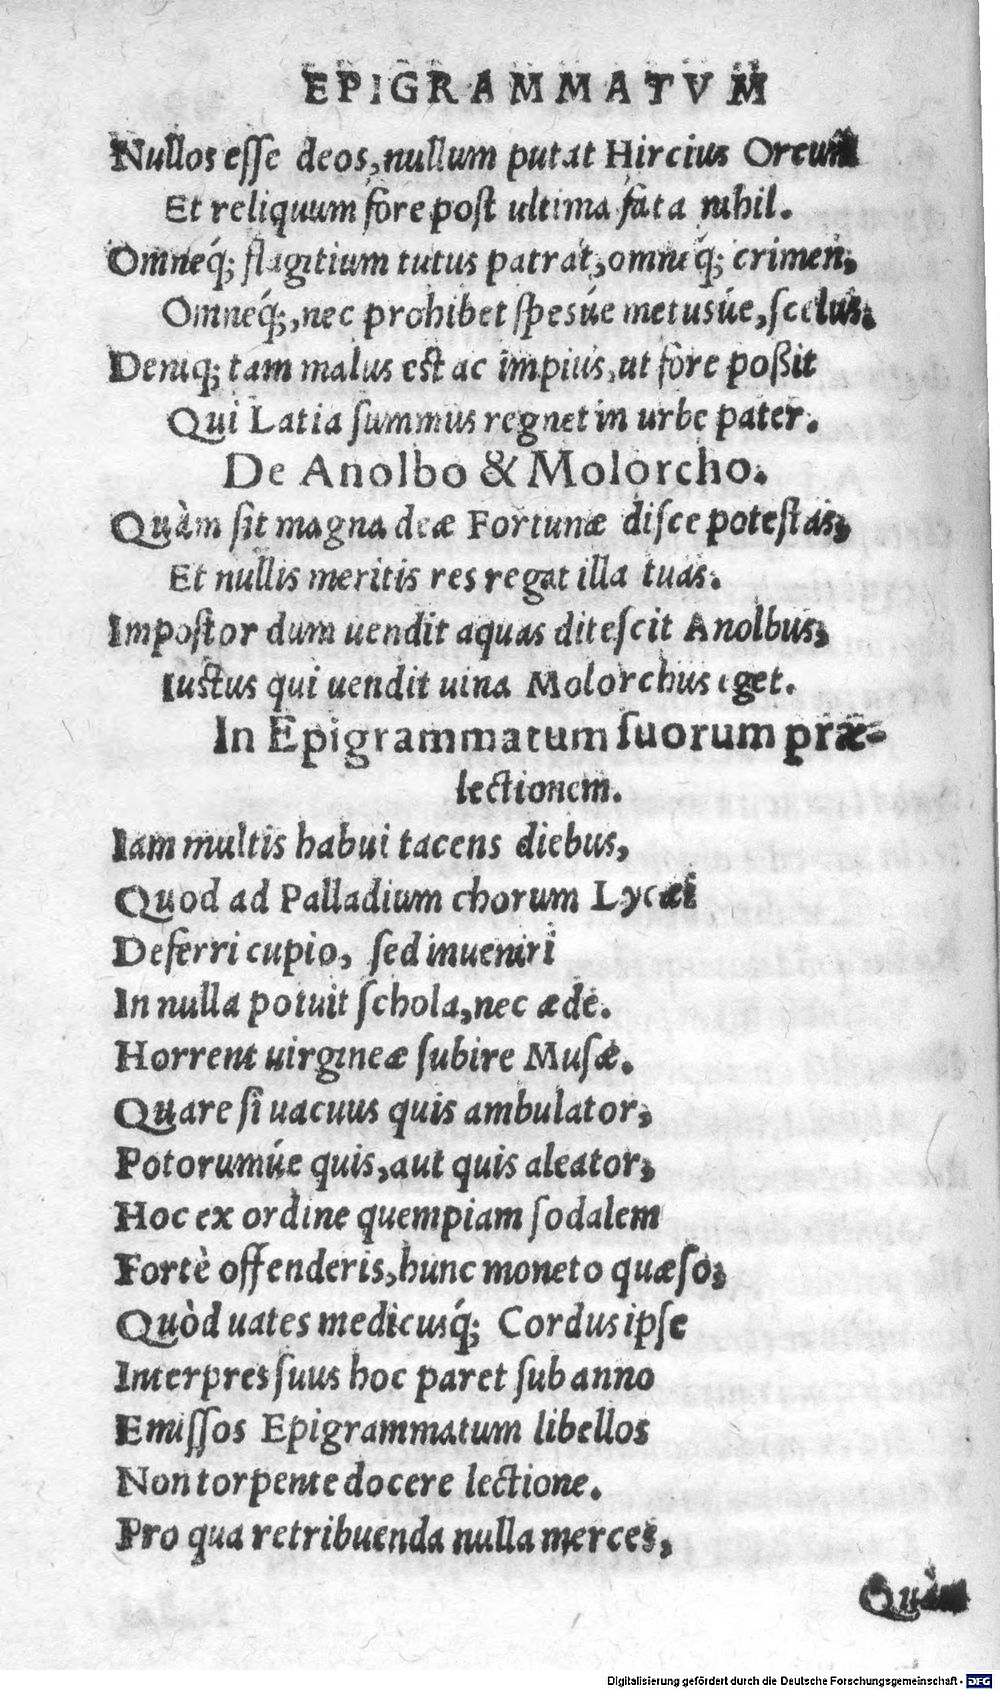 EPIGRAMMATVM
Nullos eſſe deos, nullum putat Hircius Orcum
Et reliquum fore poſt ultima fata nihil.
Omneq́; flagitium tutus patrat, omneq́; crimen,
Omneq́;, nec prohibet ſpesúe metusúe, ſcelus.
Deniq; tam malus eſt ac impius, ut fore poßit
Qui Latia ſummus regnet in urbe pater.
De Anolbo & Molorcho.
Quàm ſit magna deæ Fortunæ diſce poteſtas,
Et nullis meritis res regat illa tuas.
Impoſtor dum uendit aquas diteſcit Anolbus,
Iuſtus qui uendit uina Molorchus eget.
In Epigrammatum ſuorum præ-
lectionem.
Iam multis habui tacens diebus,
Quod ad Palladium chorum Lycæi
Deferri cupio, ſed inueniri
In nulla potuit ſchola, nec æde.
Horrent uirgineæ ſubire Muſæ.
Quare ſi uacuus quis ambulator,
Potorumúe quis, aut quis aleator,
Hoc ex ordine quempiam ſodalem
Fortè offenderis, hunc moneto quæſo,
Quòd uates medicusq́; Cordus ipſe
Interpres ſuus hoc paret ſub anno
Emiſſos Epigrammatum libellos
Non torpente docere lectione.
Pro qua retribuenda nulla merces,
Quàm
Digitalisierung gefördert durch die Deutsche Forschungsgemeinschaft - DFG